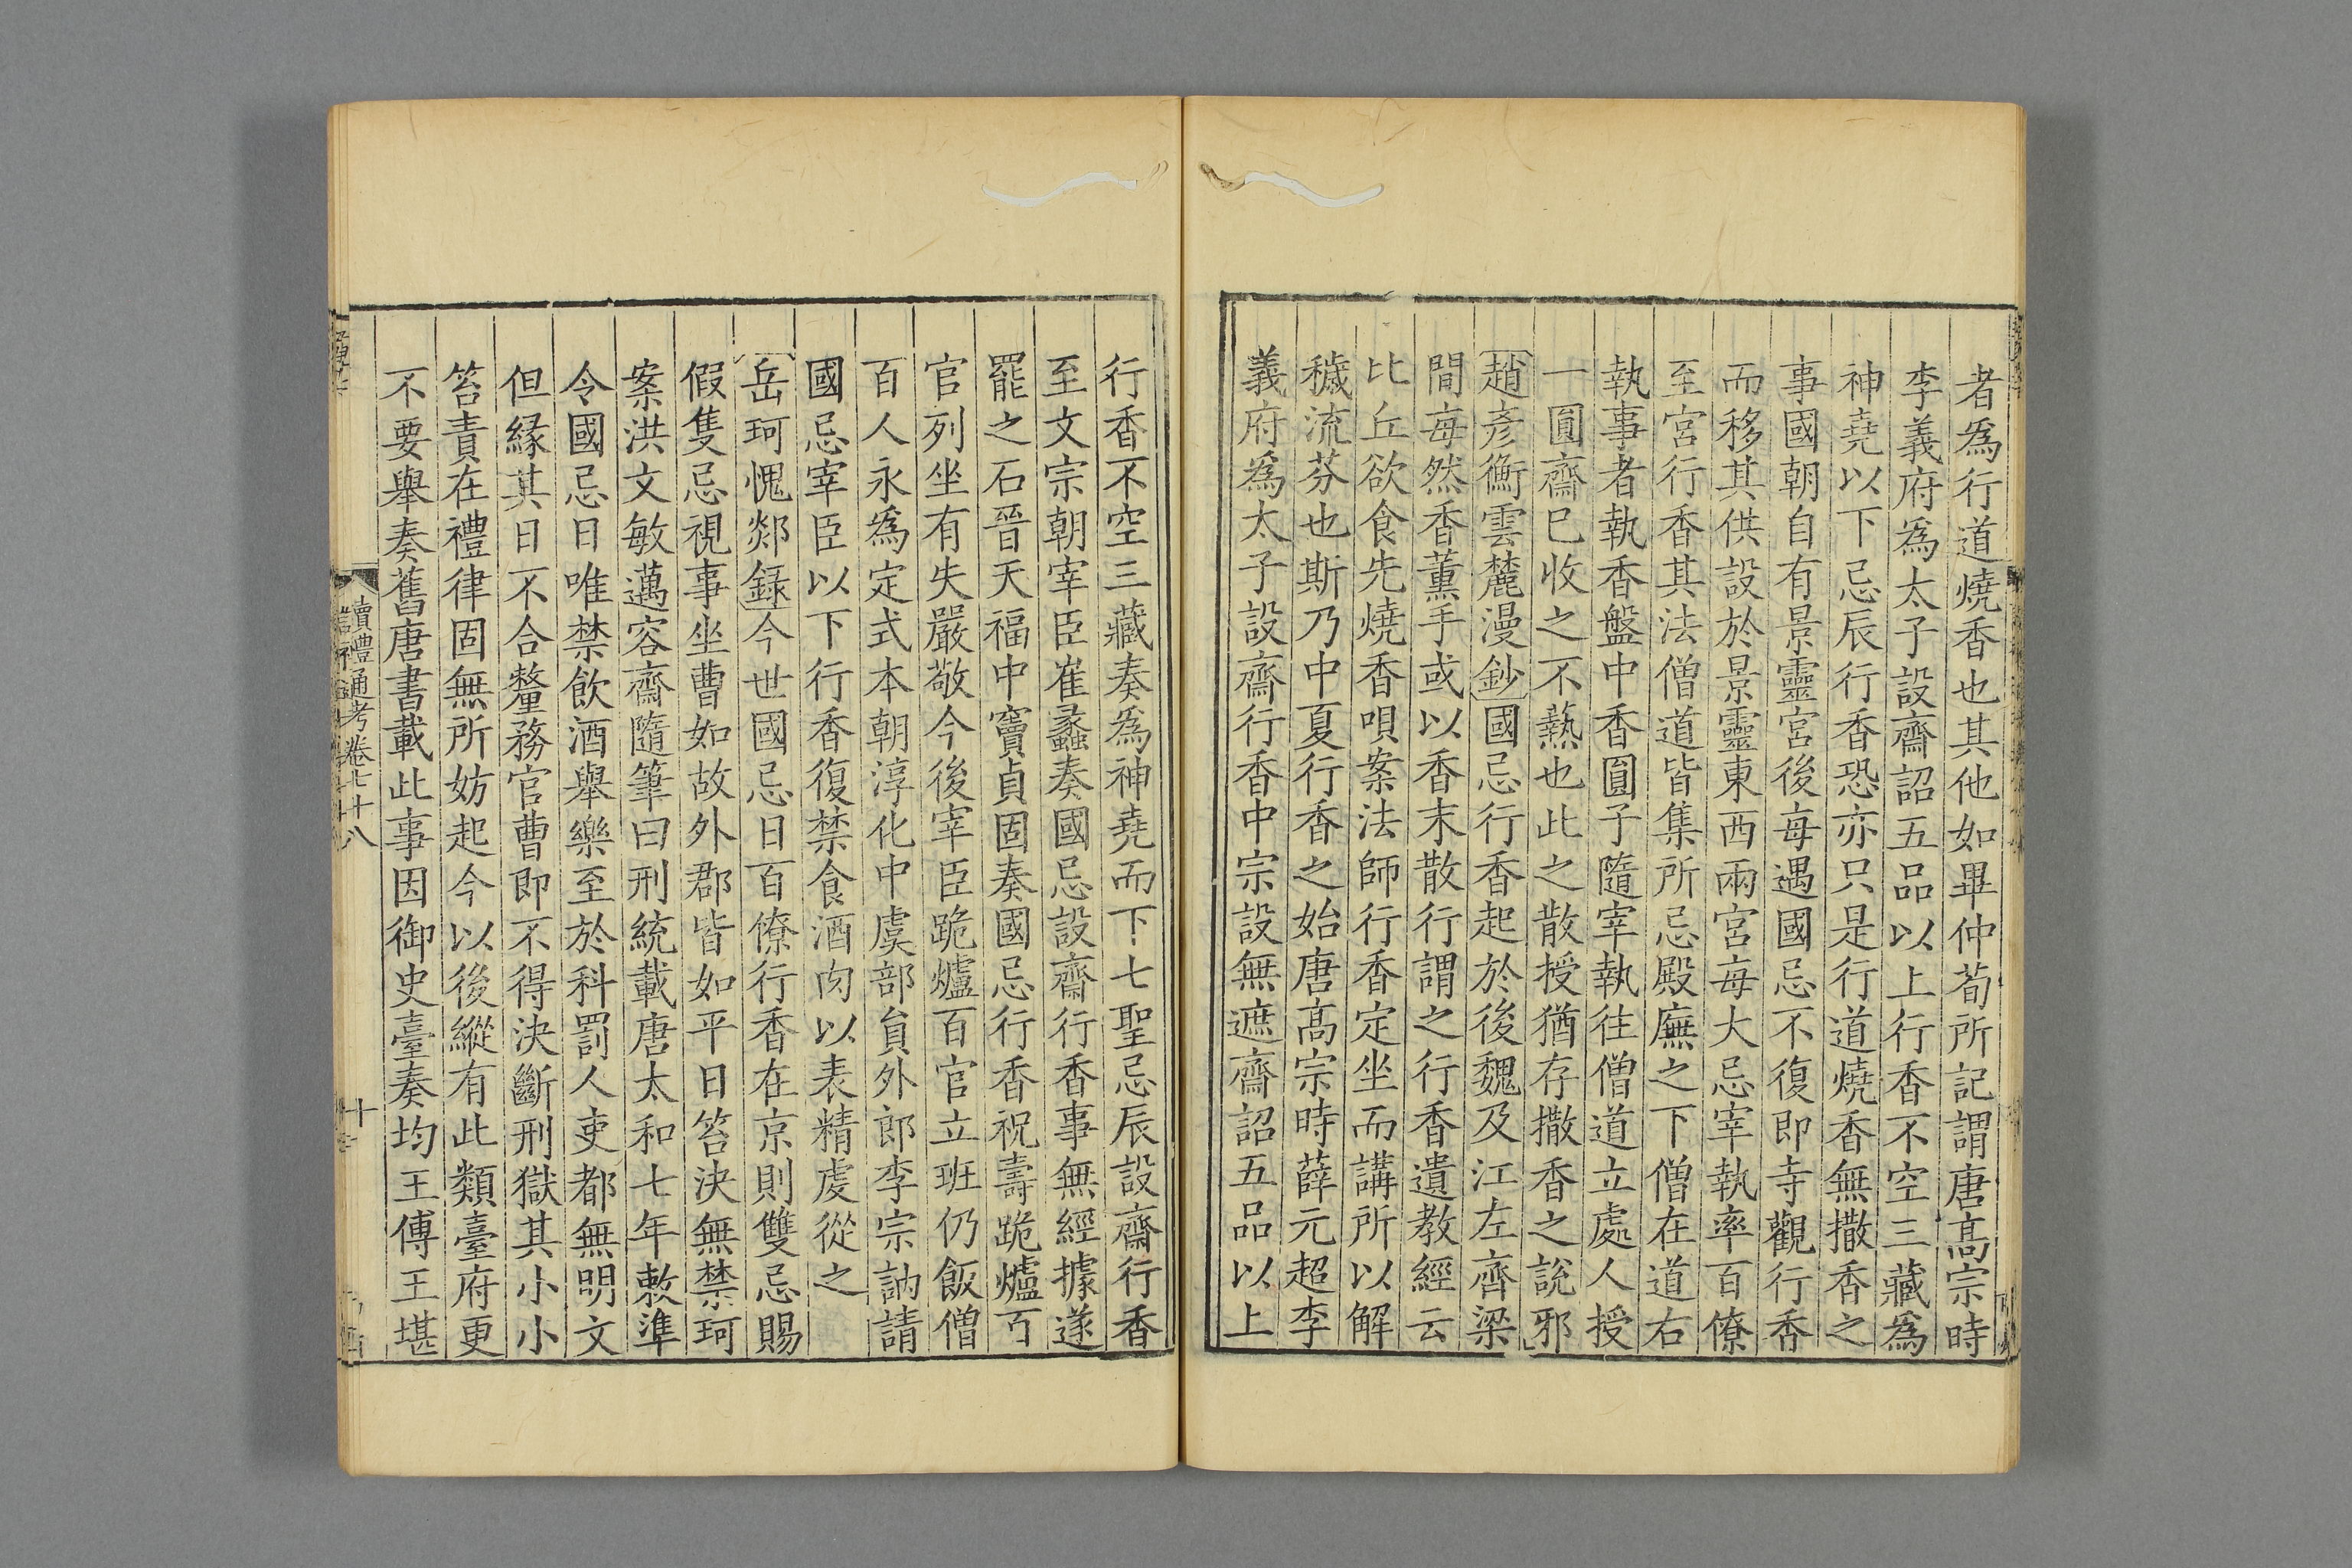 者爲行道燒香也其他如畢仲荀所記謂唐高宗時
李義府爲太子設齋詔五品以上行香不空三藏爲
神堯以下忌辰行香恐亦只是行道燒香無撒香之
事國朝自有景靈宮後每遇國忌不復即寺觀行香
而移其供設於景靈東西兩宮每大忌宰執率百僚
至宮行香其法僧道皆集所忌殿廡之下僧在道右
執事者執香盤中香圓子隨宰執往僧道立處人授
一圓齋已收之不爇也此之散授猶存撒香之說邪
趙彥衛雲麓漫鈔國忌行香起於後魏及江左齊梁
間每然香薰手或以香末散行謂之行香遺教經云
比丘欲食先燒香唄案法師行香定坐而講所以解
穢流芬也斯乃中夏行香之始唐高宗時薛元超李
義府爲太子設齋行香中宗設無遮齋詔五品以上
行香不空三藏奏爲神堯而下七聖忌辰設齋行香
至文宗朝宰臣崔蠡奏國忌設齋行香事無經據遂
罷之石晉天福中竇貞固奏國忌行香祝壽跪爐百
官列坐有失嚴敬今後宰臣跪爐百官立班仍飯僧
百人永爲定式本朝淳化中虞部員外郎李宗訥請
國忌宰臣以下行香復禁食酒肉以表精虔從之
岳珂愧郯錄今世國忌日百僚行香在京則雙忌賜
假隻忌視事坐曹如故外郡皆如平日笞決無禁珂
案洪文敏邁容齋隨筆曰刑統載唐太和七年敕準
令國忌日唯禁飲酒舉樂至於科罰人吏都無明文
但緣其日不合釐務官曹即不得決斷刑獄其小小
笞責在禮律固無所妨起今以後縱有此類臺府更
不要舉奏舊唐書載此事因御史臺奏均王傅王堪
讀禮通考卷七十八
十